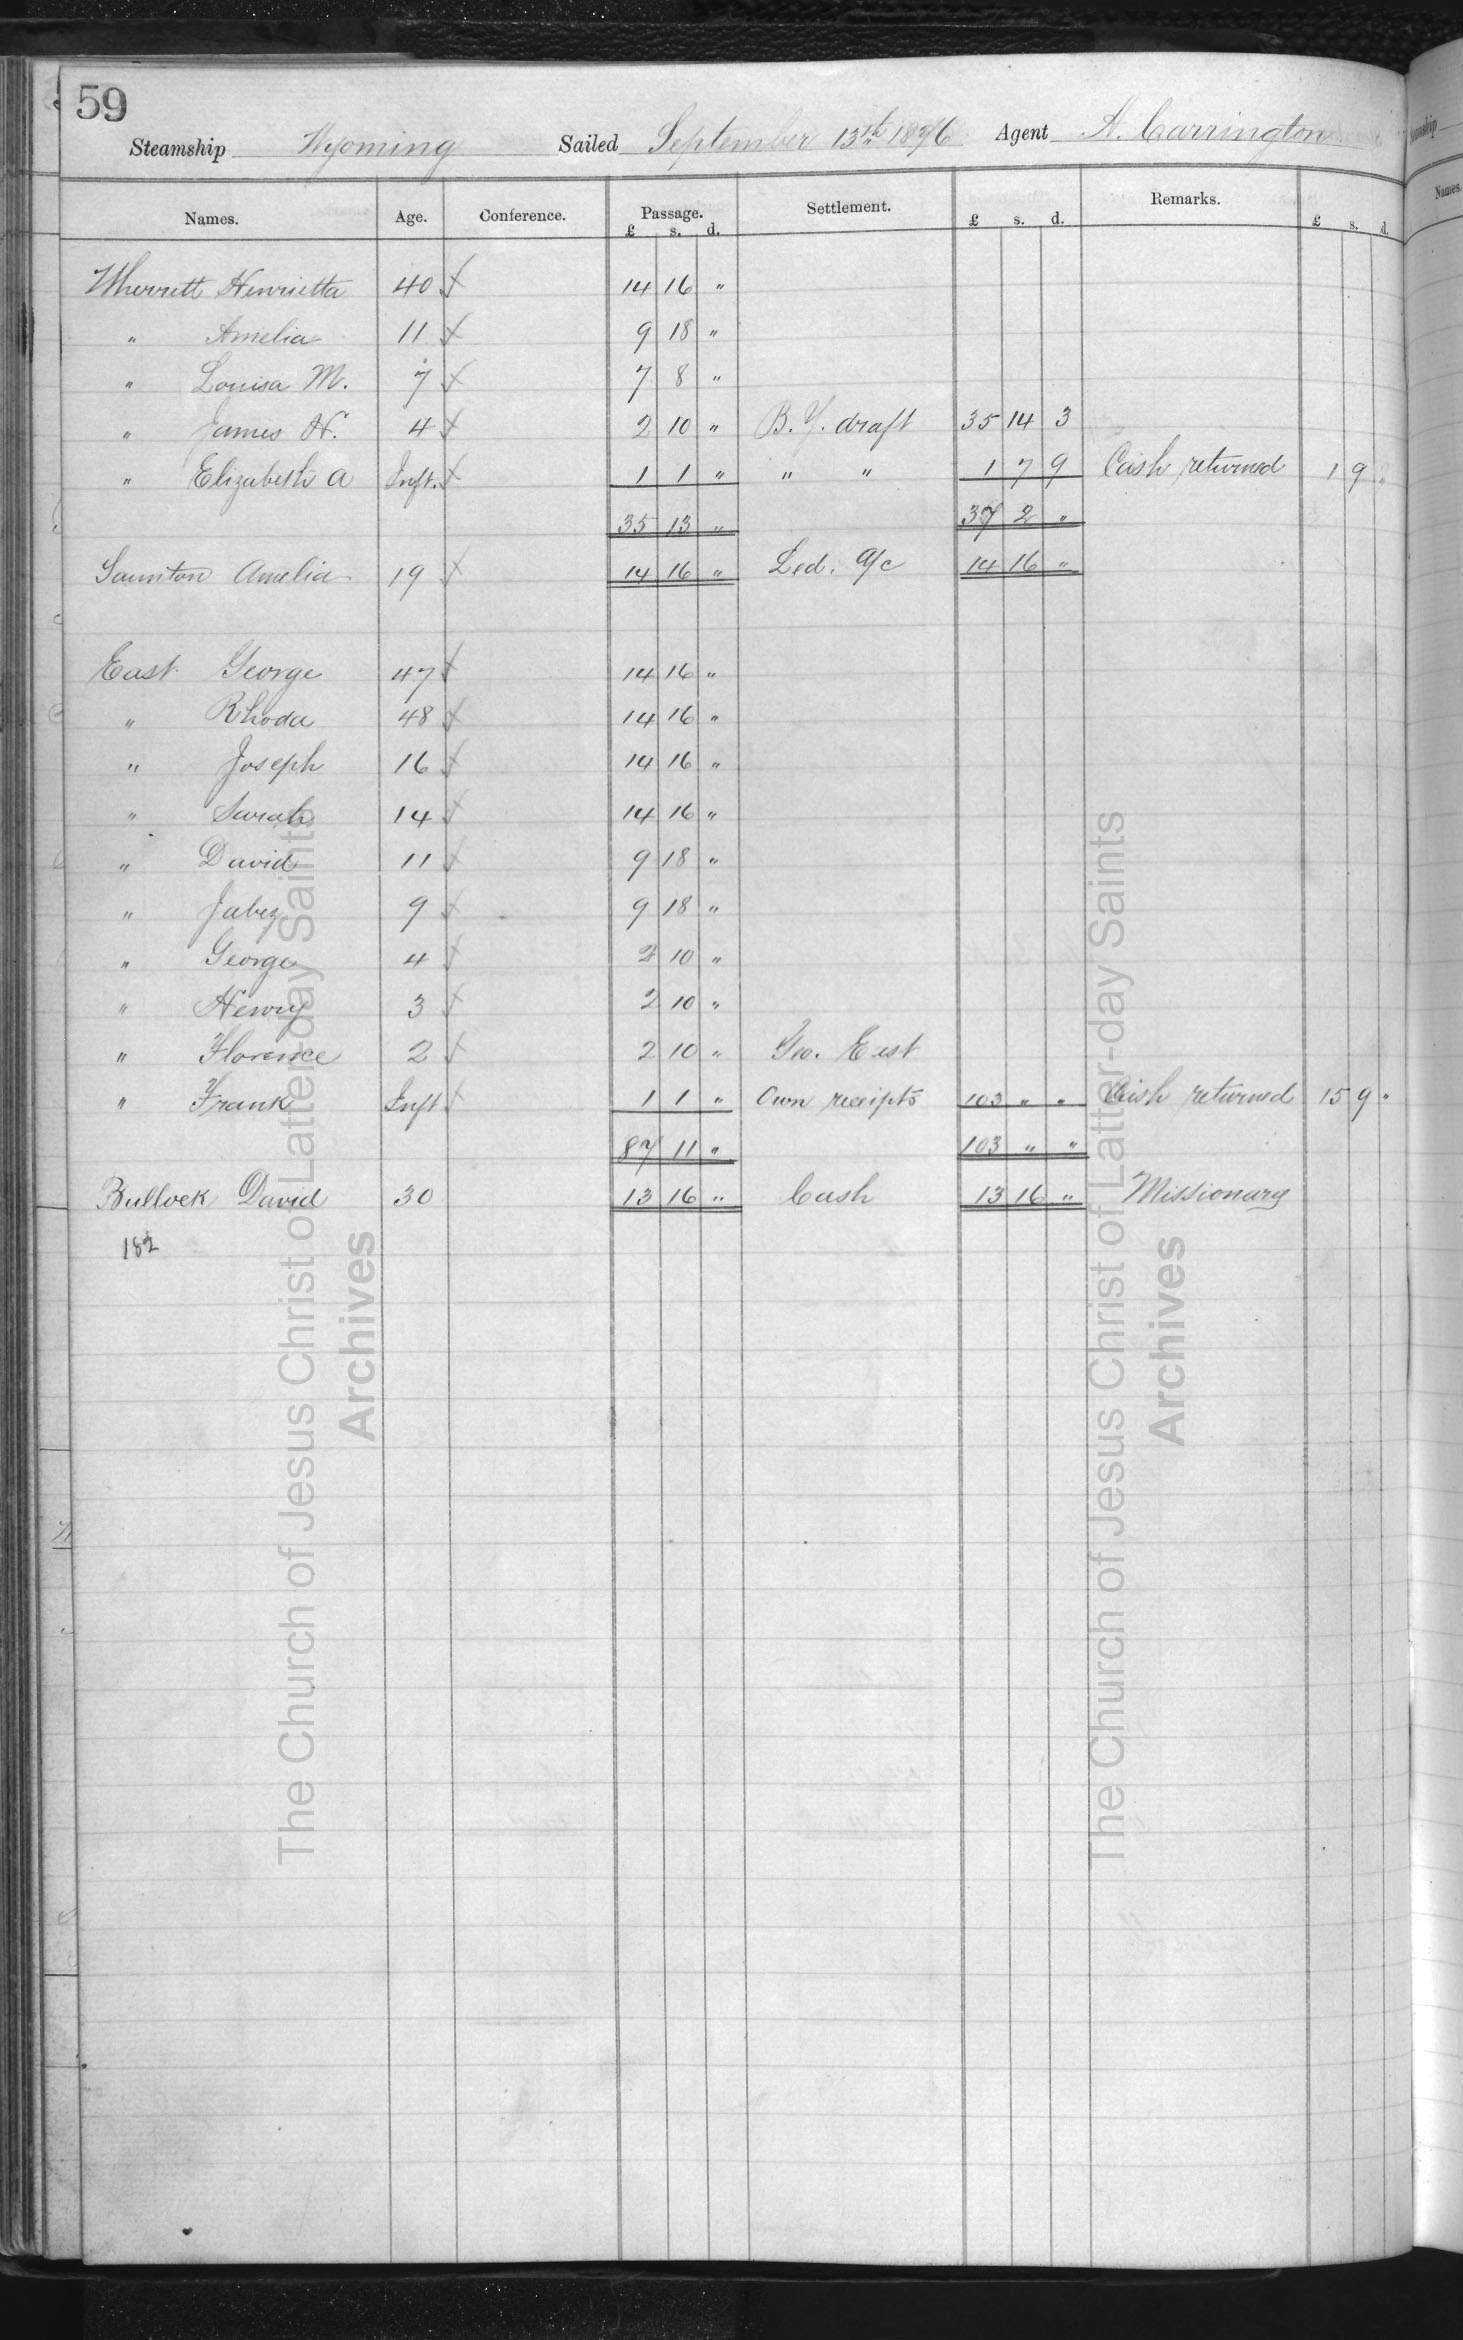 59
Steamship Wyoming Sailed September 13th 1876 Agent A. Carrington
Names. Age. Conference. Passage. Settlement. £ s. d. Remarks. £ s. d.
£ s. d.
Wherrett Henrietta 40 14 16 "
" Amelia 11 9 18 "
" Louisa M. 7 7 8 "
" James H. 4 2 10 " B.Y. draft 35 14 3
" Elizabeth A Inft. 1 1 " " " 1 7 9 Cash returned 1 9 "
35 13 " 37 2 "
Saunton Amelia 19 14 16 " Led. a/c 14 16 "
East George 47 14 16 "
" Rhoda 48 14 16 "
" Joseph 16 14 16 "
" Sarah 14 14 16 "
" David 11 9 18 "
" Jabez 9 9 18 "
" George 4 2 10 "
" Henry 3 2 10 "
" Florence 2 2 10 " Geo. East
" Frank Inft 1 1 " Own receipts 103 " " Cash returned 15 9 "
87 11 " 103 " "
Bullock David 30 13 16 " Cash 13 16 " Missionary
182
The Church of Jesus Christ of Latter-day Saints
Archives
The Church of Jesus Christ of Latter-day Saints
Archives
Names.